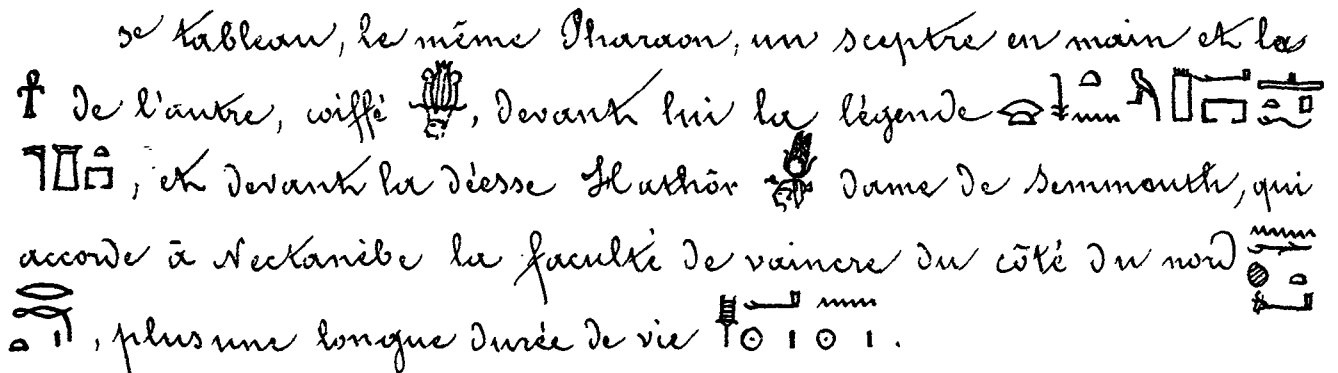 3e tableau, le même Pharaon, un sceptre en main et la
𓋹 de l'autre, coiffé , devant lui la légende
, et devant la déesse Hathôr dame de Semmouth, qui
accorde à Nectanèbe la faculté de vaincre du côté du nord
, plus une longue durée de vie .